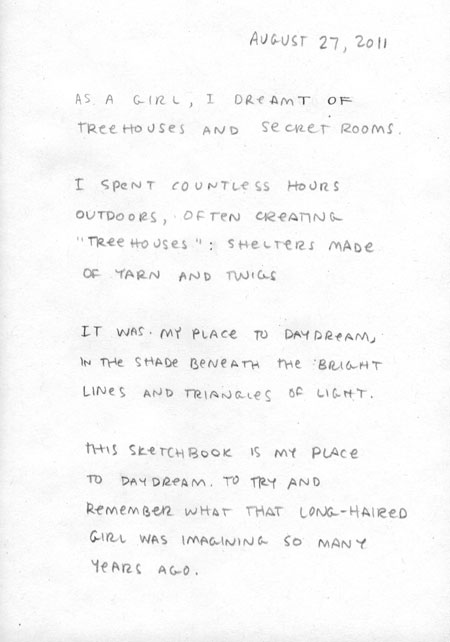 AUGUST 27, 2011
AS A GIRL, I DREAMT OF
TREEHOUSES AND SECRET ROOMS.
I SPENT COUNTLESS HOURS
OUTDOORS, OFTEN CREATING
"TREEHOUSES": SHELTERS MADE
OF YARN AND TWIGS
IT WAS MY PLACE TO DAYDREAM,
IN THE SHADE BENEATH THE BRIGHT
LINES AND TRIANGLES OF LIGHT.
THIS SKETCHBOOK IS MY PLACE
TO DAYDREAM. TO TRY AND
REMEMBER WHAT THAT LONG-HAIRED
GIRL WAS IMAGINING SO MANY
YEARS AGO.